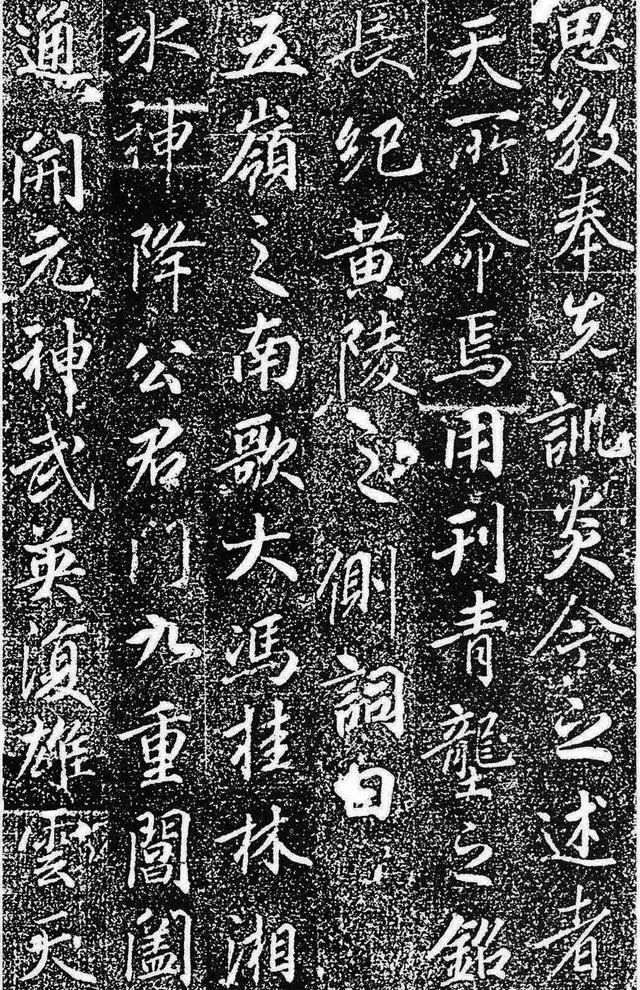 思敬奉先訓炎今之述者
天所命焉用刊青壟之銘
長紀黄陵之側詞曰
五嶺之南歌大馮桂林湘
水神降公君門九重閶闔
通開元神武英復雄雲天